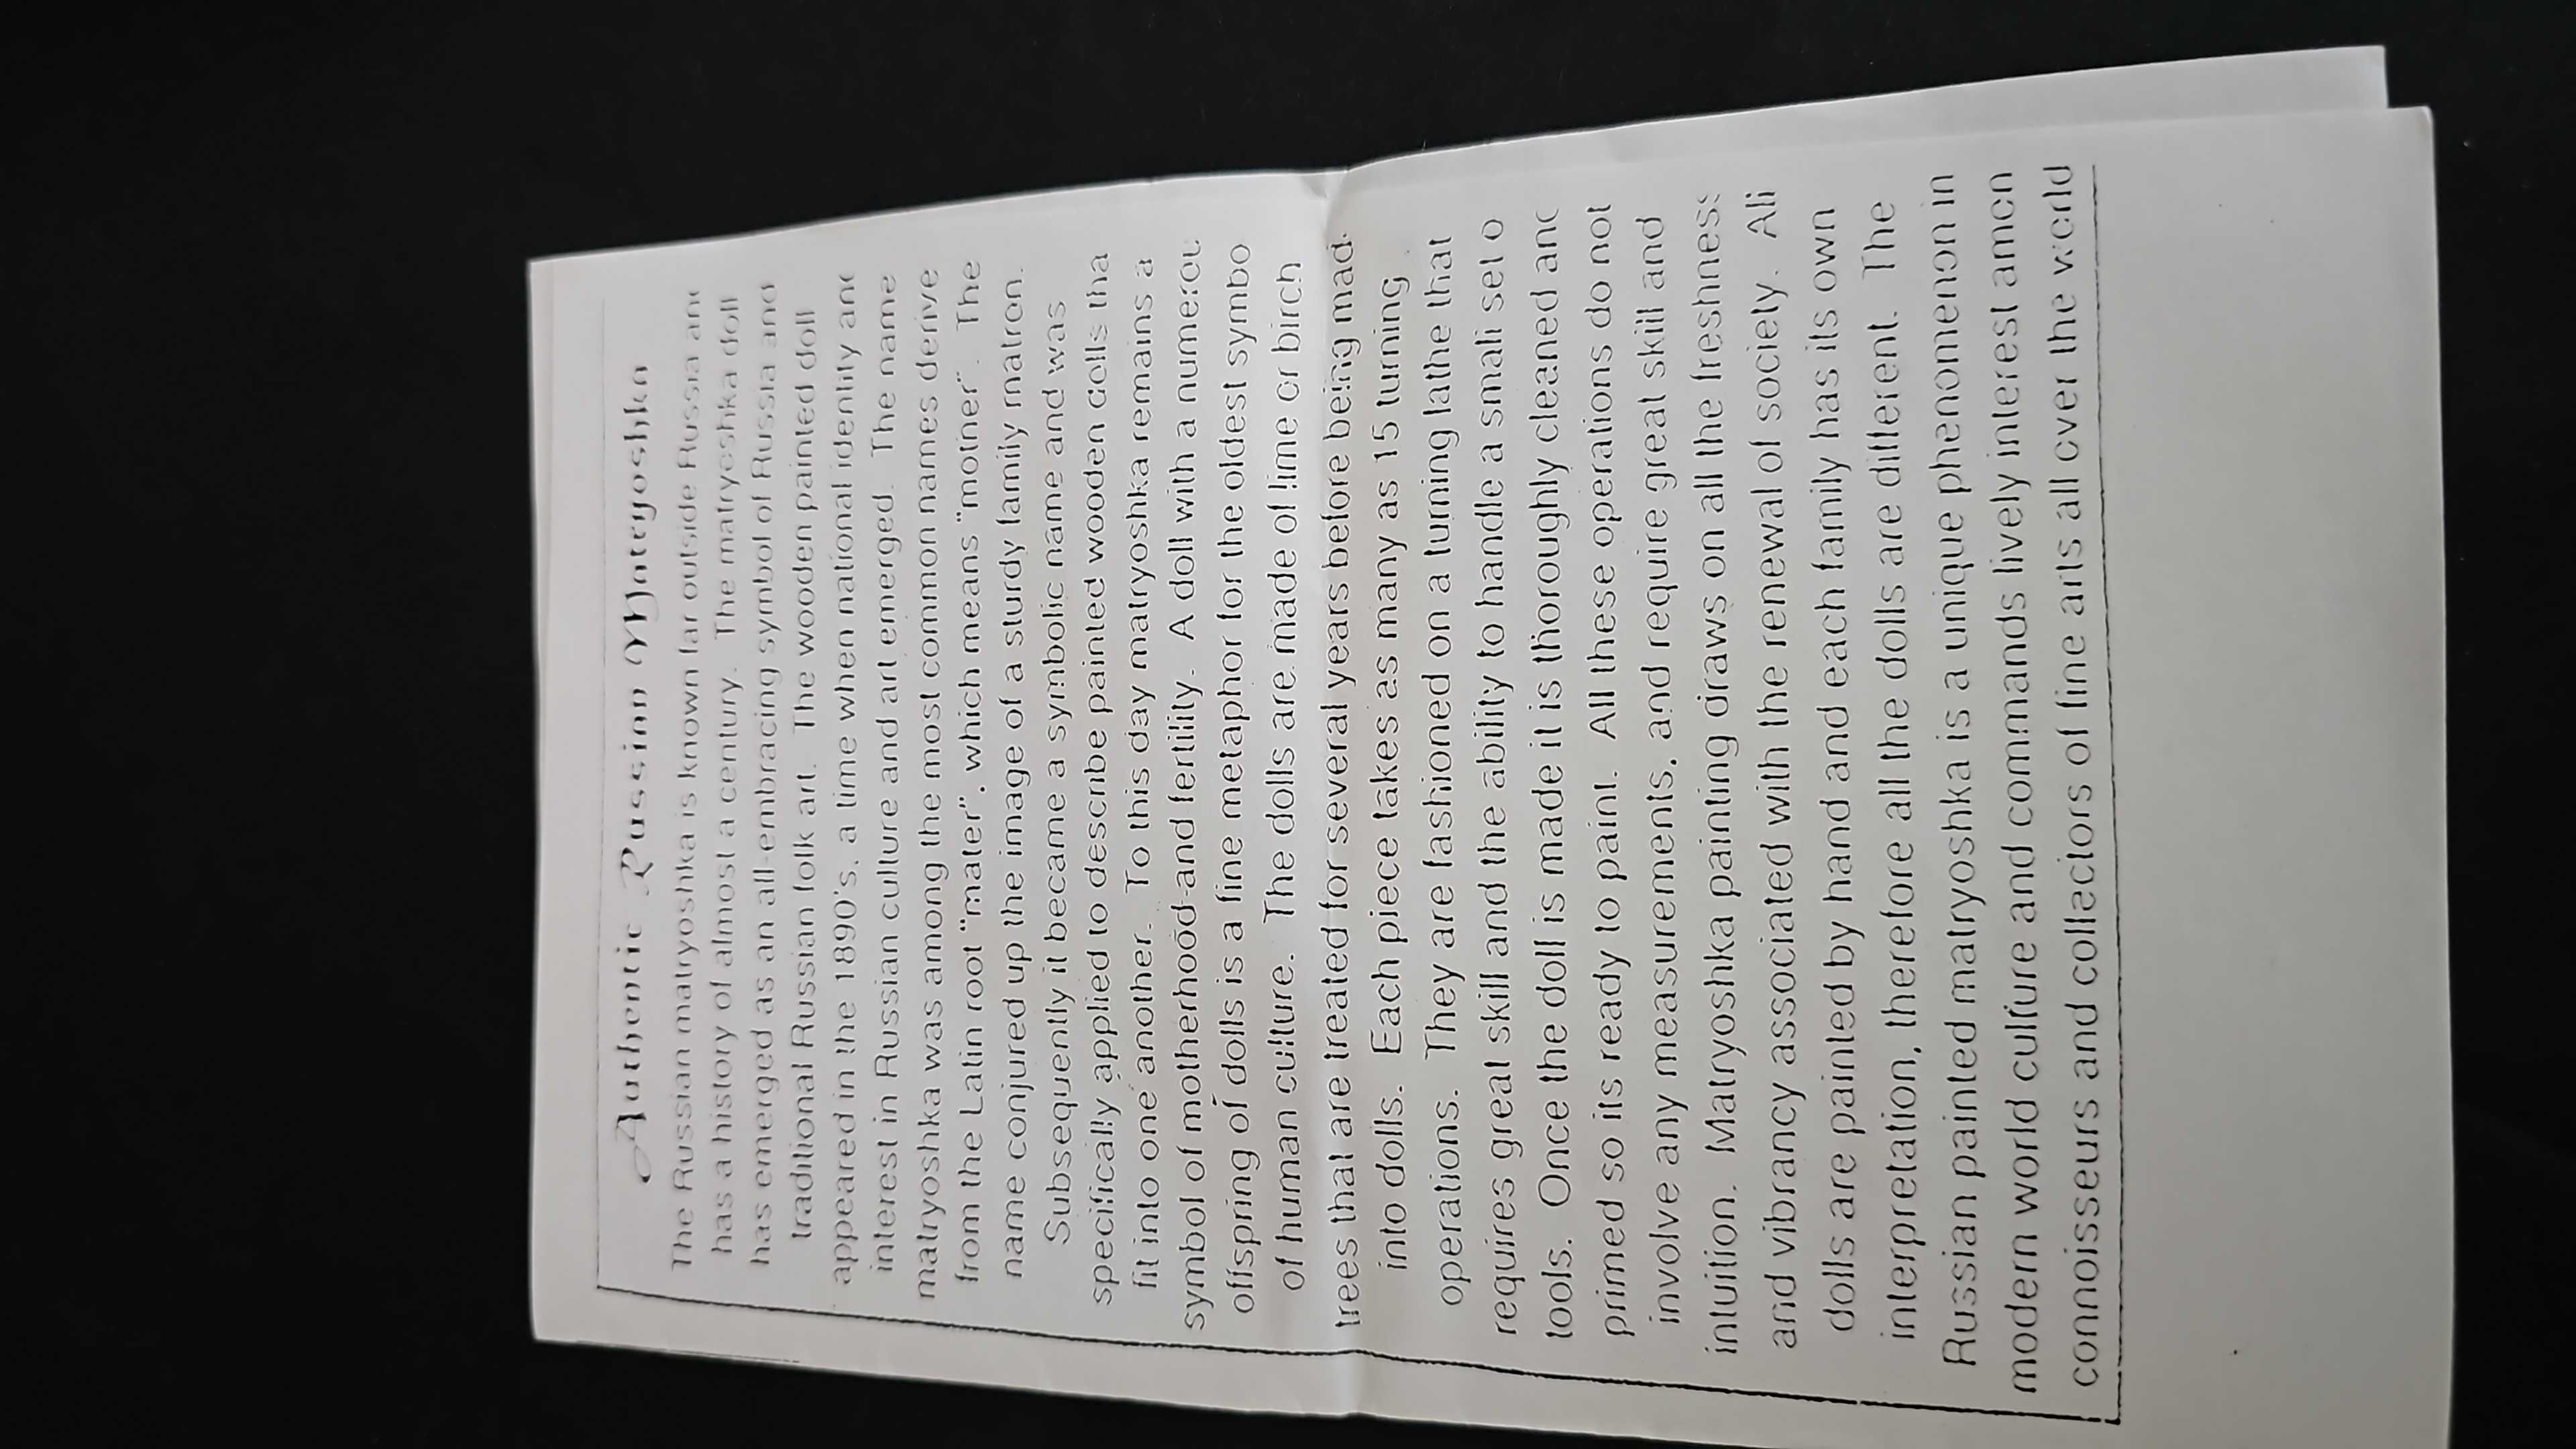 Authentic Russian Matryoshka
The Russian matryoshka is known far outside Russia and
has a history of almost a century. The matryoshka doll
has emerged as an all-embracing symbol of Russia and
traditional Russian folk art. The wooden painted doll
appeared in the 1890's, a time when national identity and
interest in Russian culture and art emerged. The name
matryoshka was among the most common names derive
from the Latin root "mater", which means "mother". The
name conjured up the image of a sturdy family matron.
Subsequently it became a symbolic name and was
specifically applied to describe painted wooden dolls tha
fit into one another. To this day matryoshka remains a
symbol of motherhood and fertility. A doll with a numerou
offspring of dolls is a fine metaphor for the oldest symbo
of human culture. The dolls are made of lime or birch
trees that are treated for several years before being mad
into dolls. Each piece takes as many as 15 turning
operations. They are fashioned on a turning lathe that
requires great skill and the ability to handle a small set o
tools. Once the doll is made it is thoroughly cleaned and
primed so its ready to paint. All these operations do not
involve any measurements, and require great skill and
intuition. Matryoshka painting draws on all the freshness
and vibrancy associated with the renewal of society. All
dolls are painted by hand and each family has its own
interpretation, therefore all the dolls are different. The
Russian painted matryoshka is a unique phenomenon in
modern world culture and commands lively interest amon
connoisseurs and collectors of fine arts all over the world